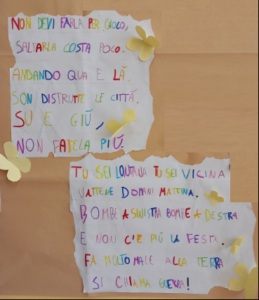 NON DEVI FARLA PER GIOCO,
SALTARLA COSTA POCO.
ANDANDO QUA E LÀ
SON DISTRUTTE LE CITTÀ.
SU E GIÙ,
NON FATELA PIÙ.
TU SEI LONTANA TU SEI VICINA
VATTENE DOMANI MATTINA.
BOMBE A SINISTRA BOMBE A DESTRA
E NON C'E PIÙ LA FESTA.
FA MOLTO MALE ALLA TERRA
SI CHIAMA GUERRA!